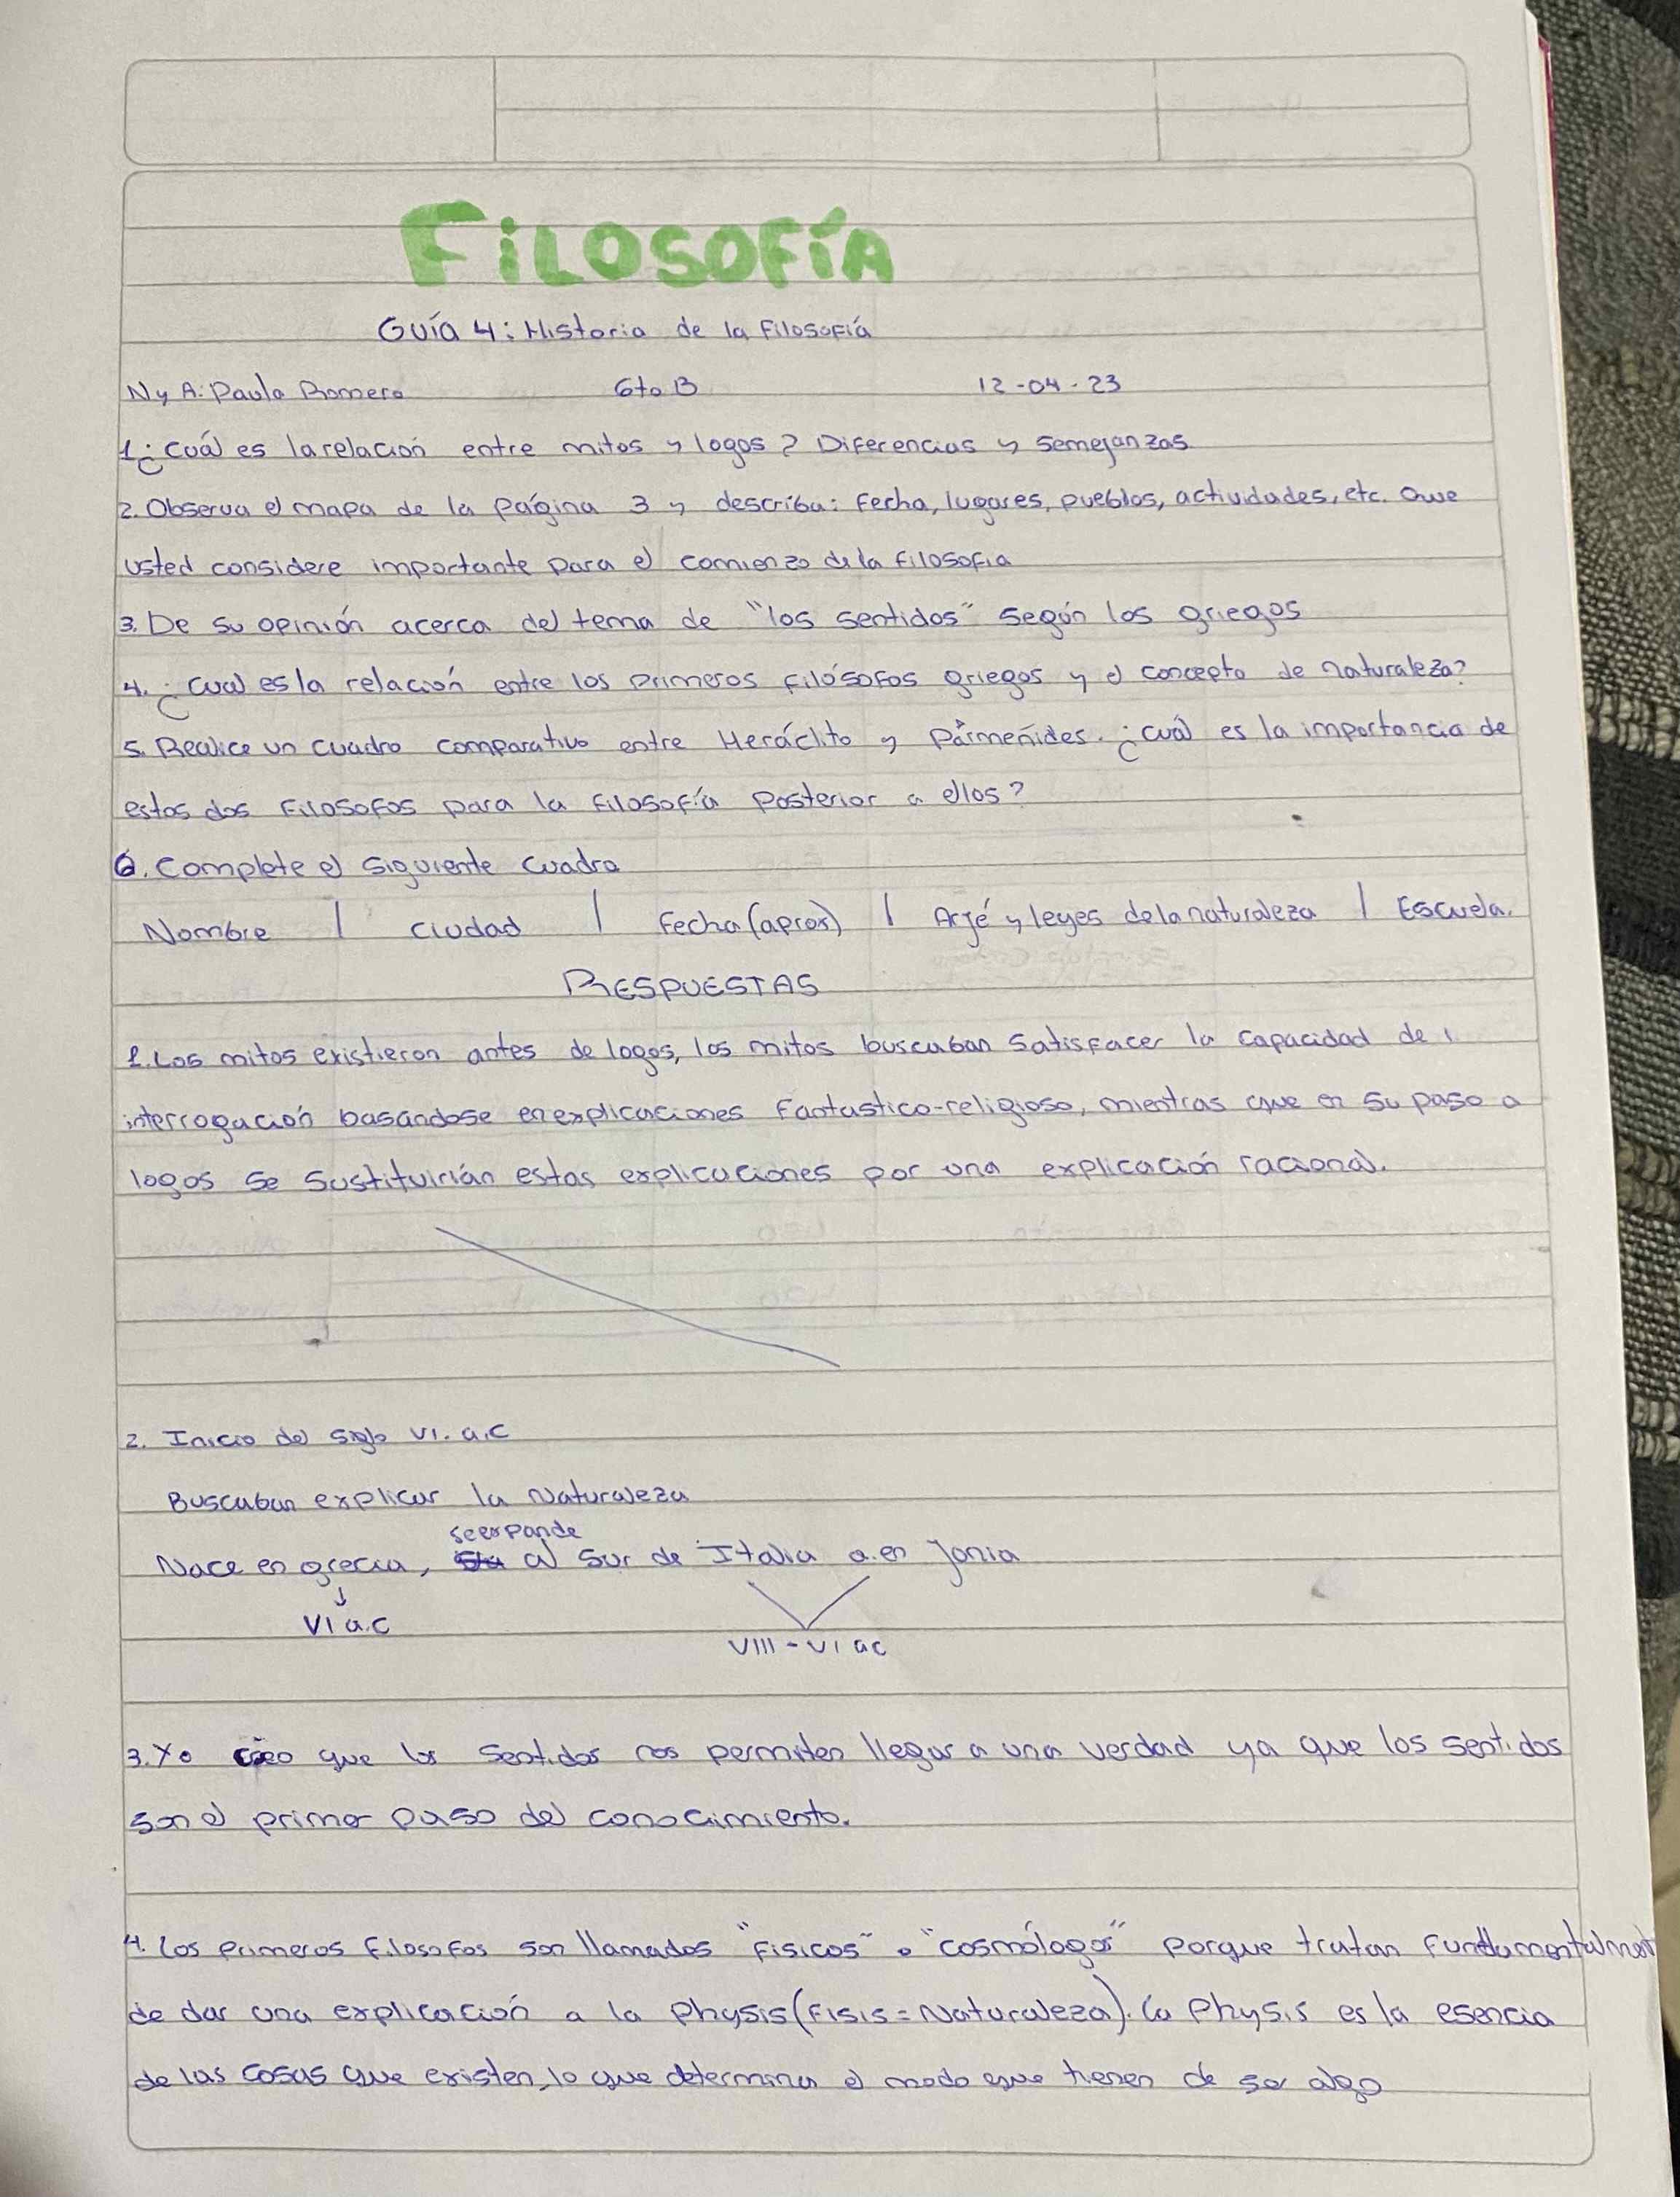 FiLOSOFÍA
Guía 4: Historia de la Filosofía
N y A: Paula Romero 6to B 12-04-23
1. ¿Cuál es la relación entre mitos y logos? Diferencias y semejanzas.
2. Observa el mapa de la página 3 y describa: Fecha, lugares, pueblos, actividades, etc. Que
usted considere importante para el comienzo de la filosofia
3. De su opinión acerca del tema de "los sentidos" según los griegos
4. ¿Cual es la relación entre los primeros filósofos griegos y el concepto de naturaleza?
5. Realice un cuadro comparativo entre Heráclito y Pármenides. ¿Cuál es la importancia de
estos dos Filosofos para la filosofía posterior a ellos?
6. Complete el siguiente cuadro
Nombre | ciudad | Fecha (aprox) | Arjé y leyes de la naturaleza | Escuela.
RESPUESTAS
1. Los mitos existieron antes de logos, los mitos buscaban satisfacer la capacidad de
interrogación basandose en explicaciones fantastico-religioso, mientras que en su paso a
logos se sustituirían estas explicaciones por una explicación racional.
2. Inicio del siglo VI. a.C
Buscaban explicar la Naturaleza
se expande
Nace en grecia, al sur de Italia a. en Jonia
VI a.C
VIII - VI ac
3. Yo creo que los sentidos nos permiten llegar a una verdad ya que los sentidos
son el primer paso del conocimiento.
4. Los primeros filosofos son llamados "Fisicos" o "cosmólogos" porque tratan fundamentalment
de dar una explicación a la Physis (Fisis = Naturaleza). La Physis es la esencia
de las cosas que existen, lo que determina el modo que tienen de ser algo